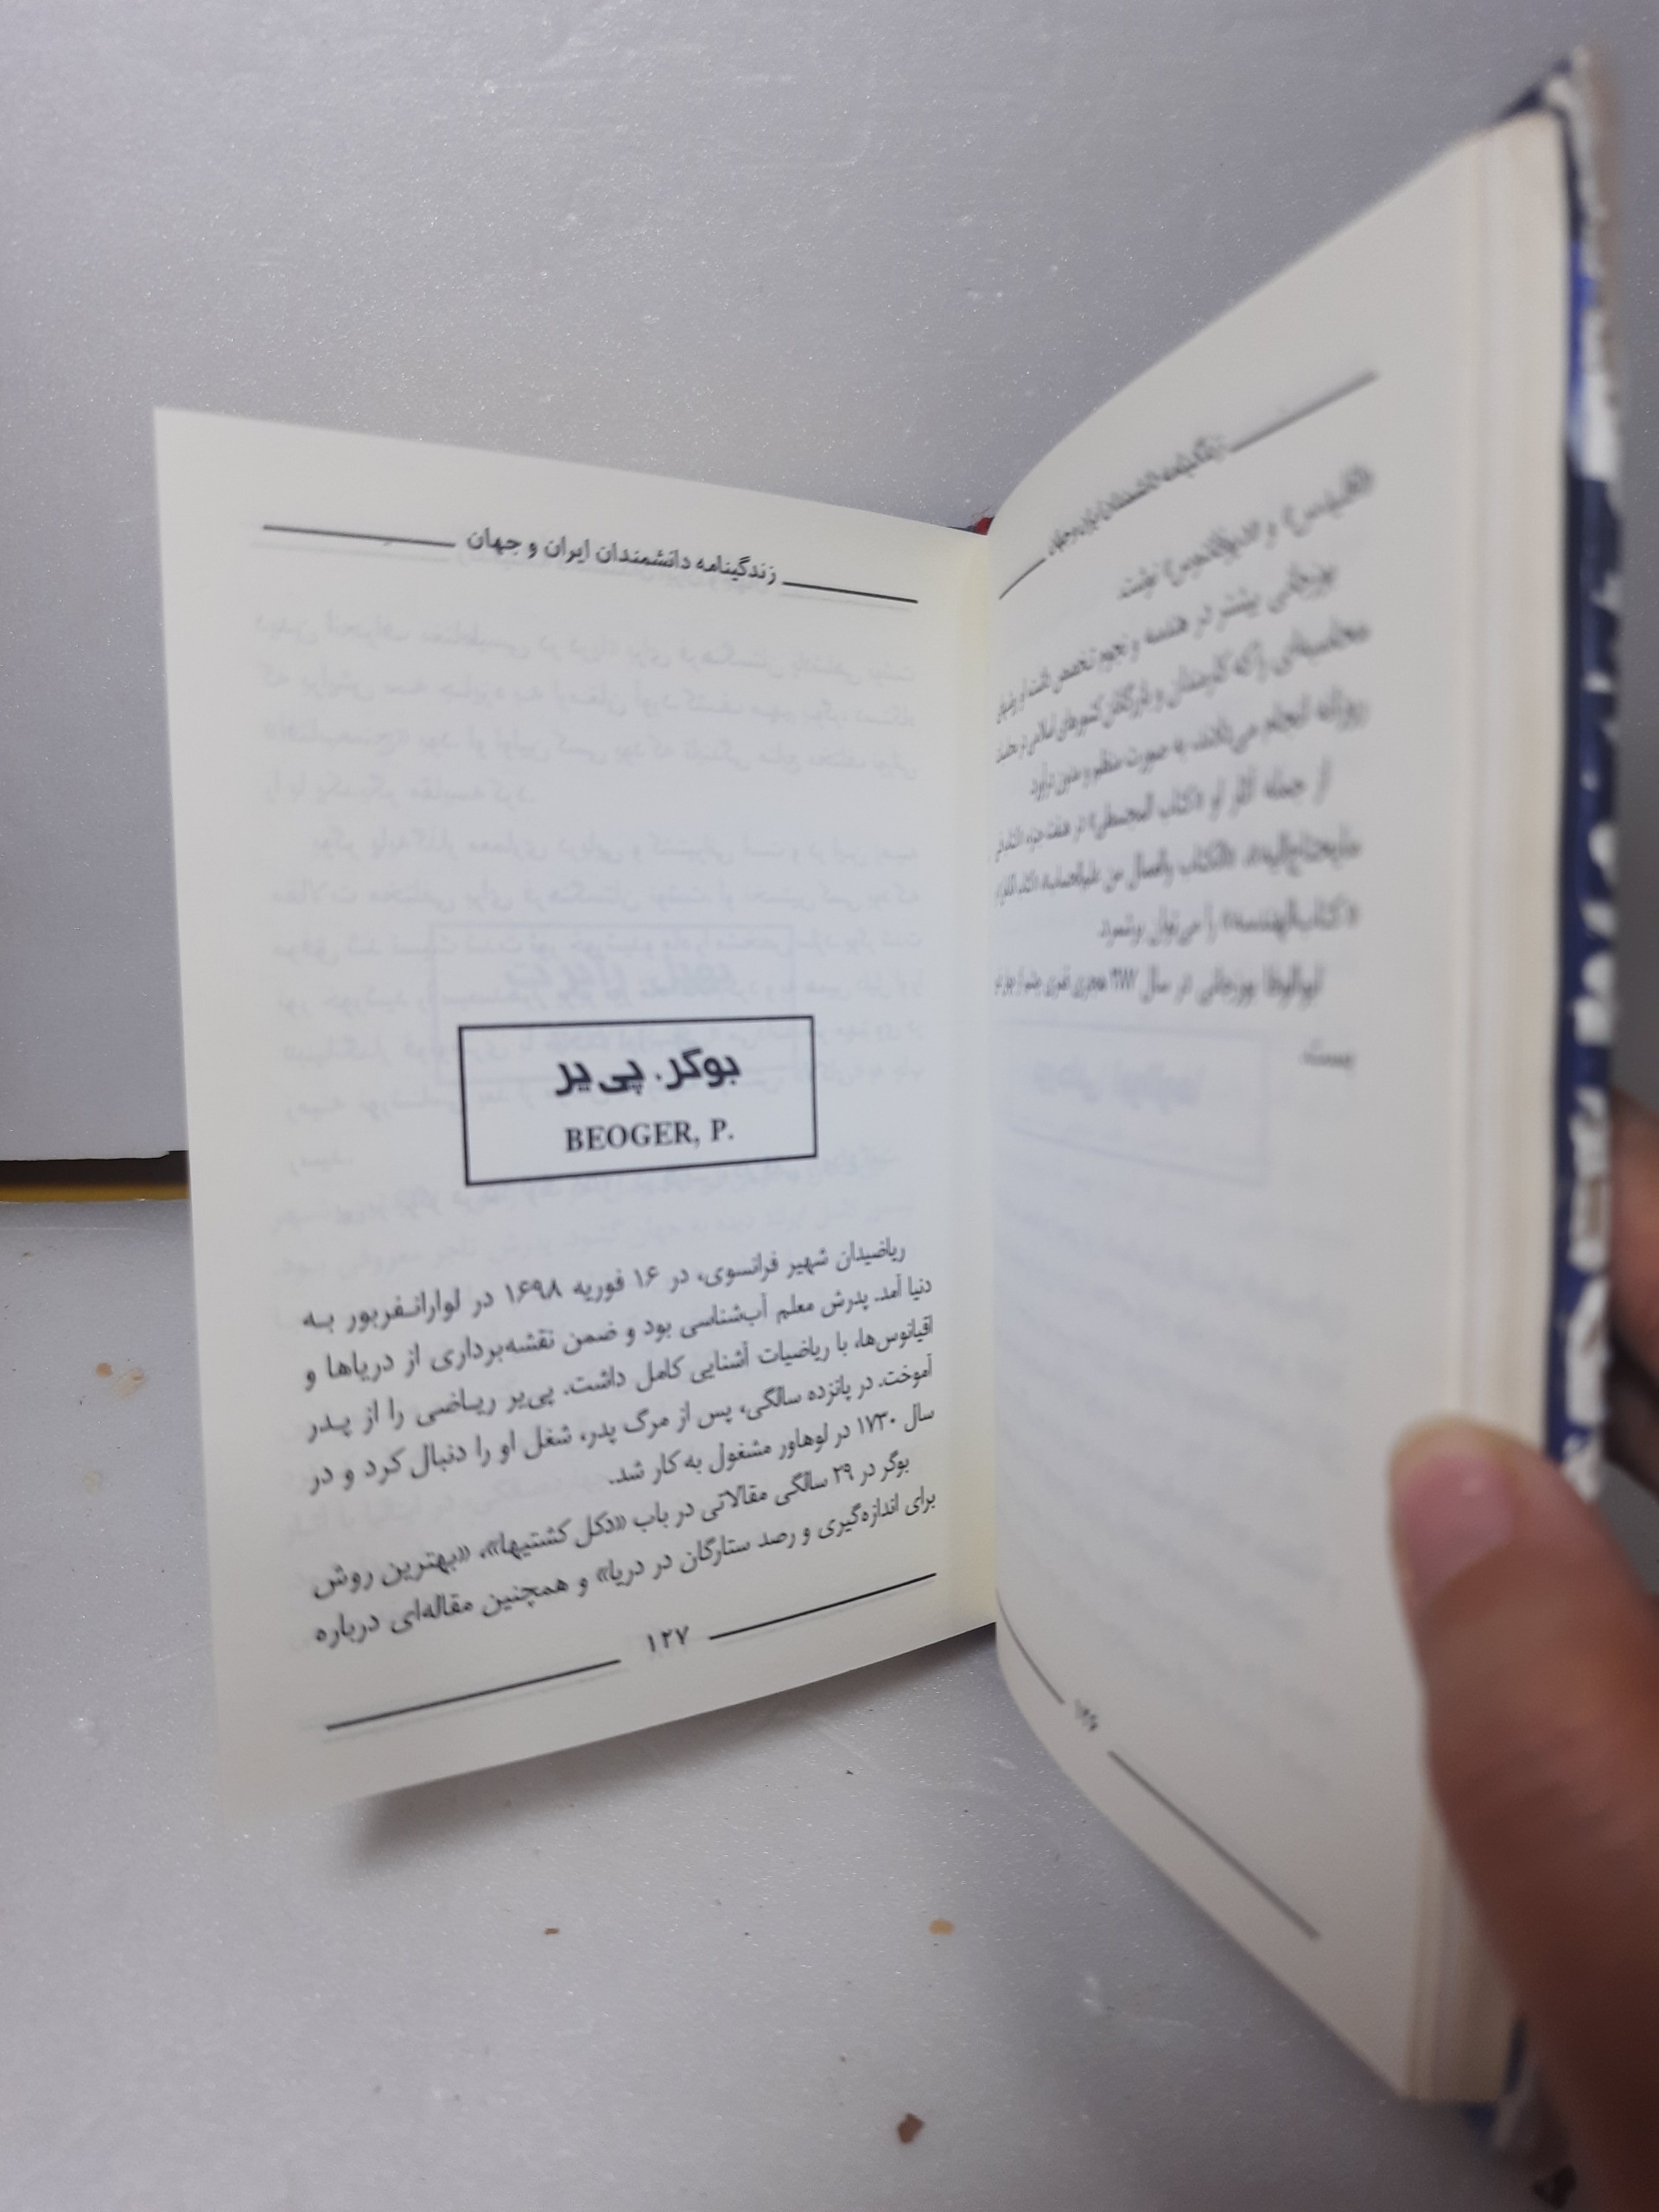 زندگینامه دانشمندان ایران و جهان
«اقلیدس» و «دیوفانتوس» نوشت.
بوزجانی بیشتر در هندسه و نجوم تخصص داشت او
محاسبه‌ای را که کارمندان و بازرگانان کشورهای اسلامی در
روزانه انجام می‌دادند، به صورت منظم و مدون درآورد
از جمله آثار او «کتاب المجسطی» در هفت جزء
«کتاب‌الهندسه» را می‌توان برشمرد.
ابوالوفا بوزجانی در سال ۳۸۷ هجری قمری چشم از جهان
بست.
زندگینامه دانشمندان ایران و جهان
بوگر. پی‌یر
BEOGER, P.
ریاضیدان شهیر فرانسوی، در ۱۶ فوریه ۱۶۹۸ در لوارانـفربور بـه
دنیا آمد. پدرش معلم آب‌شناسی بود و ضمن نقشه‌برداری از دریاها و
اقیانوس‌ها، با ریاضیات آشنایی کامل داشت. پی‌یر ریـاضی را از پـدر
آموخت. در پانزده سالگی، پس از مرگ پدر، شغل او را دنبال کرد و در
سال ۱۷۳۰ در لوهاور مشغول به کار شد.
بوگر در ۲۹ سالگی مقالاتی در باب «دکل کشتیها»، «بهترین روش
برای اندازه‌گیری و رصد ستارگان در دریا» و همچنین مقاله‌ای درباره
۱۲۷